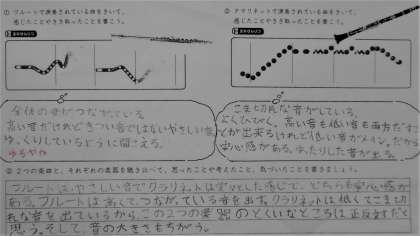 ① フルートで演奏されている曲をきいて、
感じたことやきき取ったことを書こう。
② クラリネットで演奏されている曲をきいて、
感じたことやきき取ったことを書こう。
全体の音がつながっている。
高い音だけれどきつい音ではないやさしい音
ゆっくりしているように聞こえる。
ゆるやか
こま切れな音がしている。
よくひびく。高い音も低い音も両方だす
ことが出来るけれど低い音がメイン。だから
安心感がある。
した音が出る。
③ 2つの楽曲と、それぞれの楽器を聴き比べて、思ったことや考えたこと、気づいたことを書きましょう。
フルートは、やさしい音でクラリネットは
した感じで、どちらも安心感が
ある。フルートは高くて、つながっている音を出す。クラリネットは低くてこま切
れな音を出しているから、この2つの楽器のとくいなところは正反対だと
思う。そして、音の大きさもちがう。